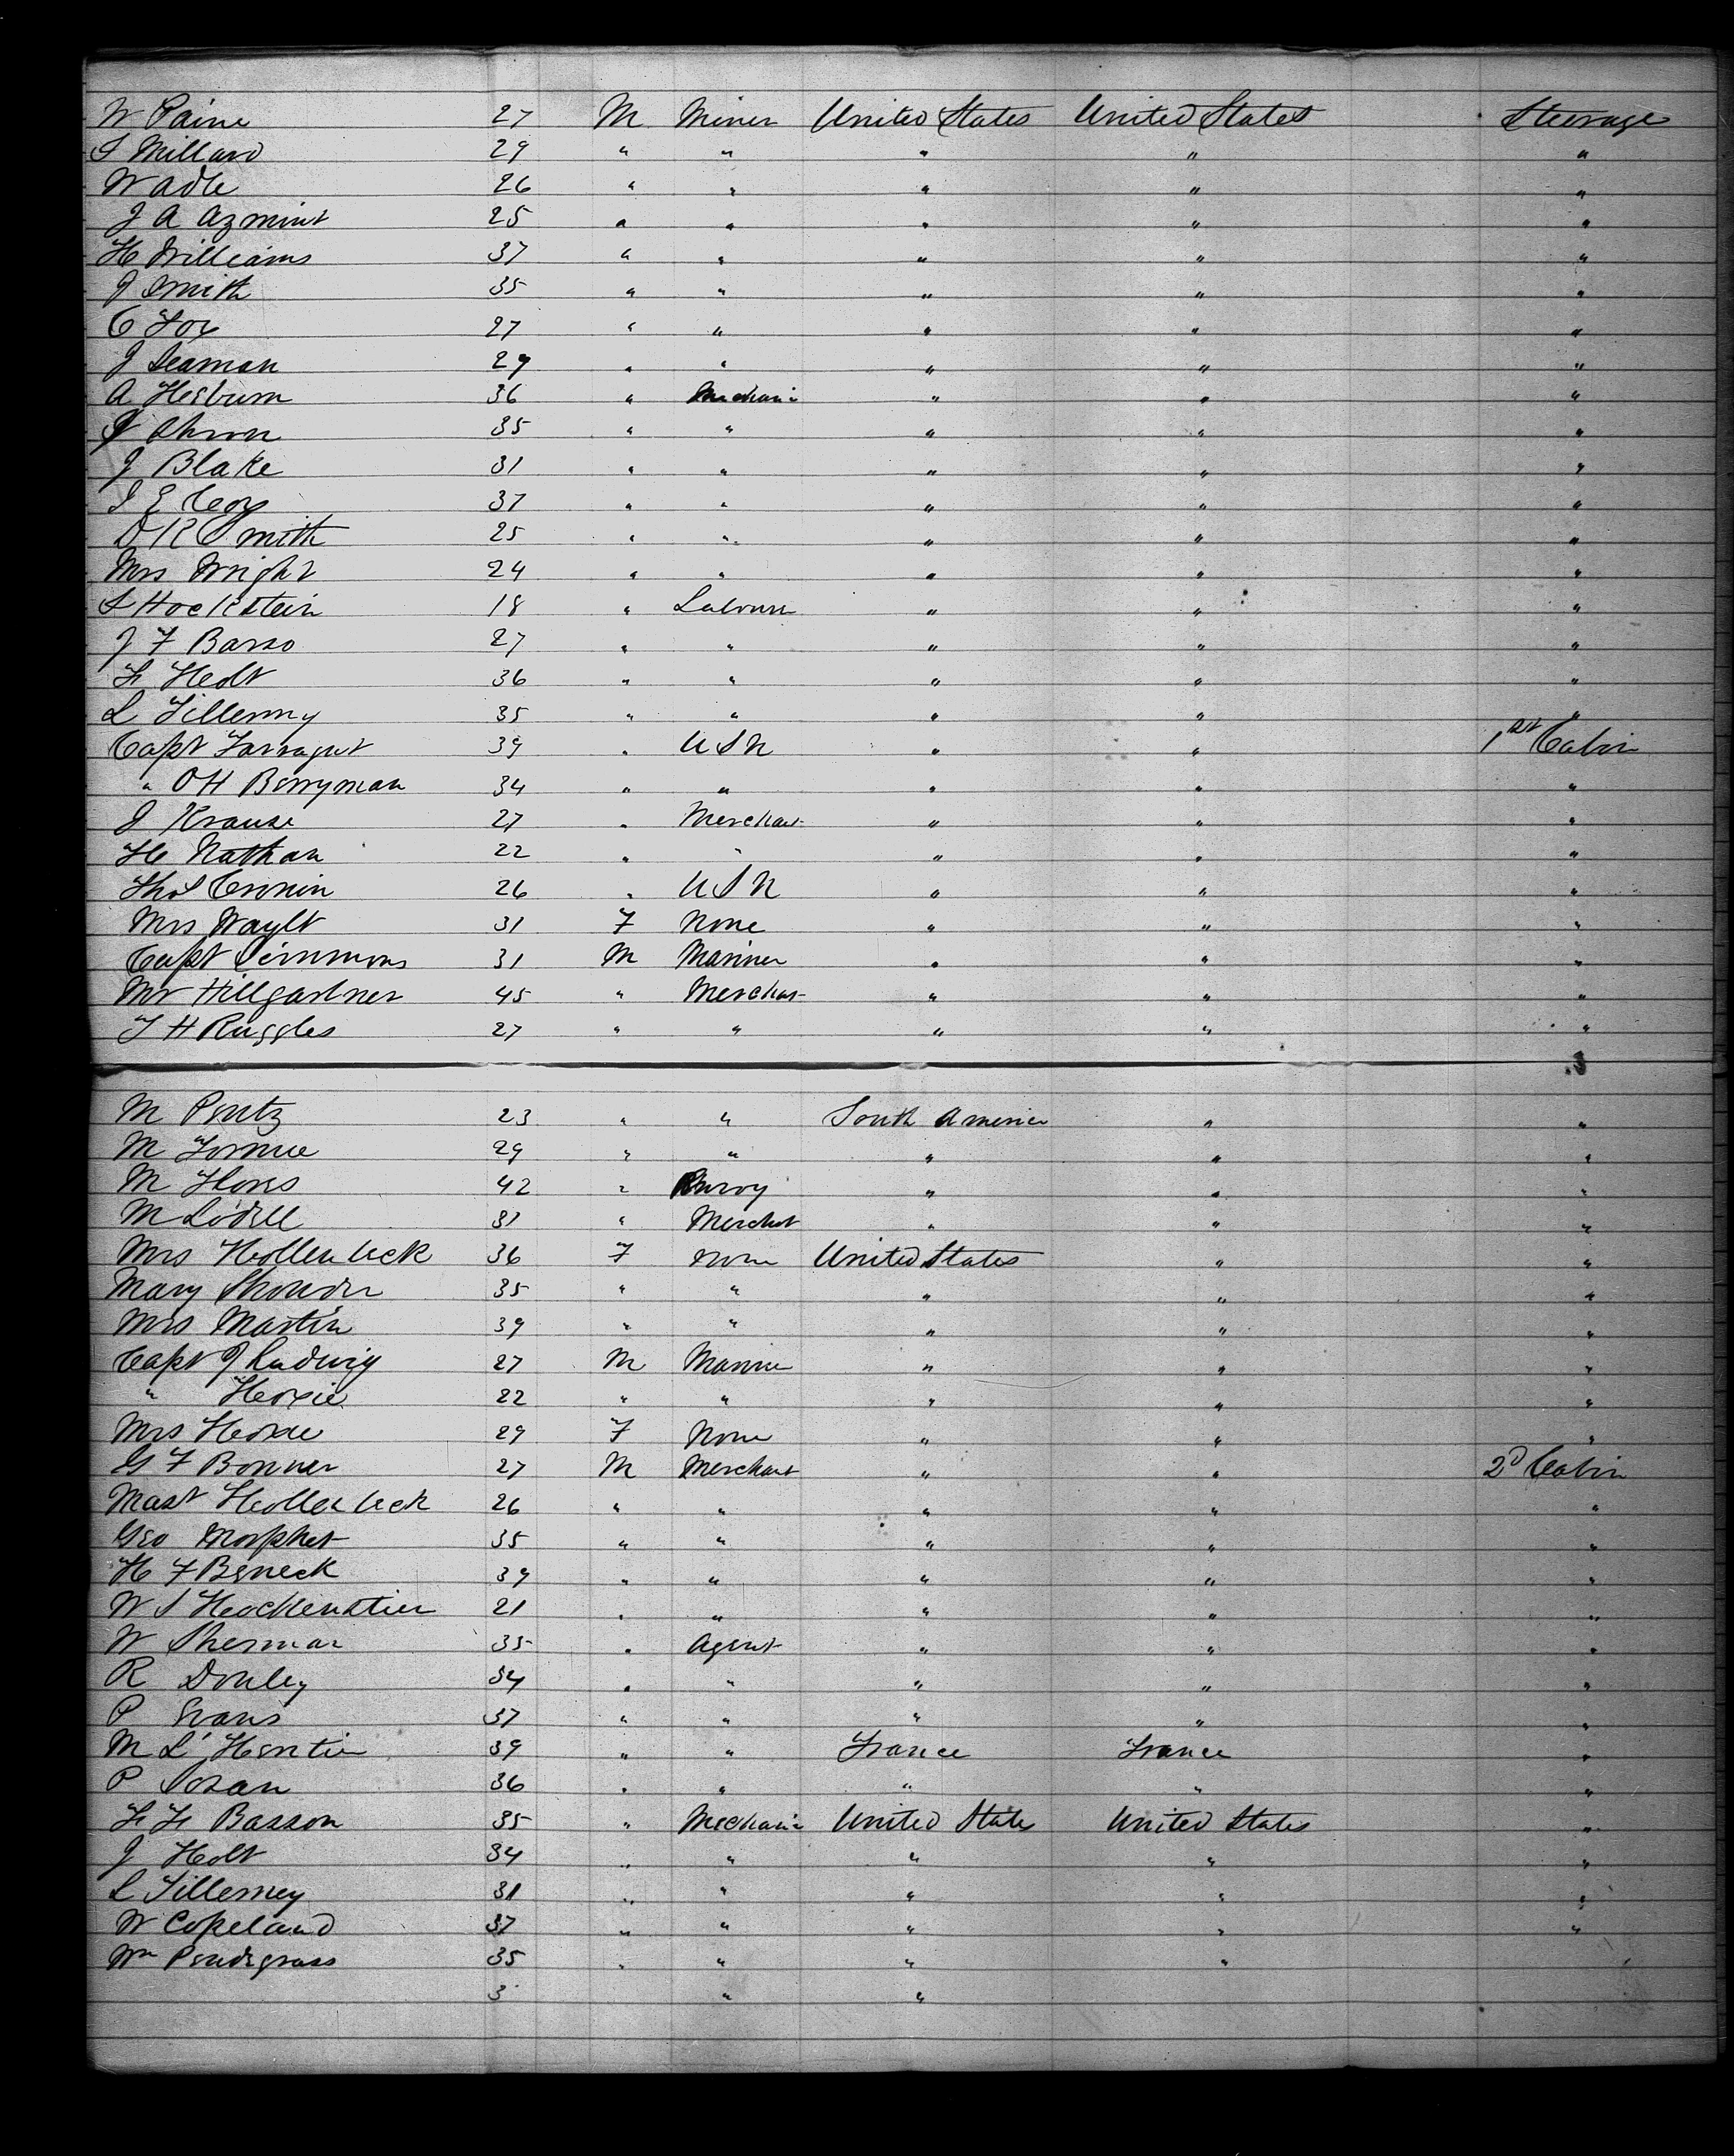 W Paine 27 M Miner United States United States Steerage
S Millard 29 " " " " "
Wade 26 " " " " "
J A Azmint 25 " " " " "
H Williams 37 " " " " "
J Smith 35 " " " " "
C Fox 27 " " " " "
J Seaman 29 " " " " "
A Hesburn 36 " Mechani " " "
35 " " " " "
J Blake 31 " " " " "
37 " " " " "
D R Smith 25 " " " " "
Mrs Wright 24 " " " " "
S Hockstein 18 " " " "
J F Barso 27 " " " " "
F Holt 36 " " " " "
L Tillemny 35 " " " " "
Capt Farragut 39 " USN " " 1st Cabin
" O H Berryman 34 " " " " "
J Krause 27 " Merchant " " "
H Nathan 22 " " " " "
Thos Cronin 26 " USN " " "
Mrs 31 F None " " "
Capt Simmons 31 M Mariner " " "
Mr Hillgardner 45 " Merchant " " "
T H Ruggles 27 " " " " "
M Pentz 23 " " South America " "
M 29 " " " " "
M Flores 42 " Envoy " " "
M 31 " Merchet " " "
Mrs Hollenbeck 36 F None United States " "
Mary 35 " " " " "
Mrs Martin 39 " " " " "
Capt J Ludwig 27 M " " "
" Hoxie 22 " " " " "
Mrs Hoxie 29 F None " " "
G F Bonner 27 M Merchant " " 2D Cabin
Mast Hollenbeck 26 " " " " "
Geo Morphet 35 " " " " "
H F Beneck 39 " " " " "
W S 21 " " " " "
W Sherman 35 " Agent " " "
R Donley 34 " " " " "
P Evans 37 " " " " "
M L' 39 " " France France "
P 36 " " " " "
F F Basson 35 " Mechani United State United States "
J Holt 34 " " " " "
L Tillemey 31 " " " " "
W Copeland 37 " " " " "
Wm Pendegrass 35 " " " "
3 " "